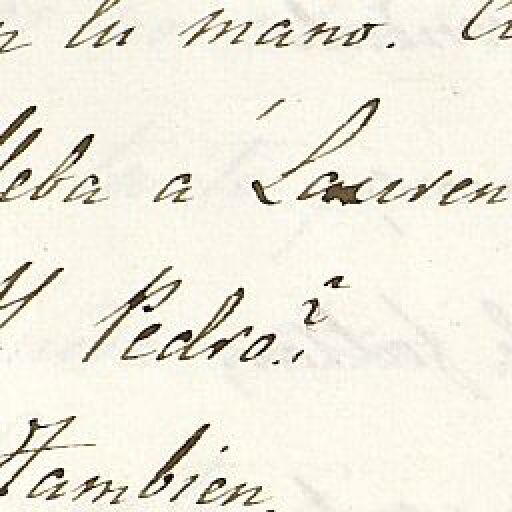 n tu mano.
lleba a Lauren
Y Pedro..?
Tambien.